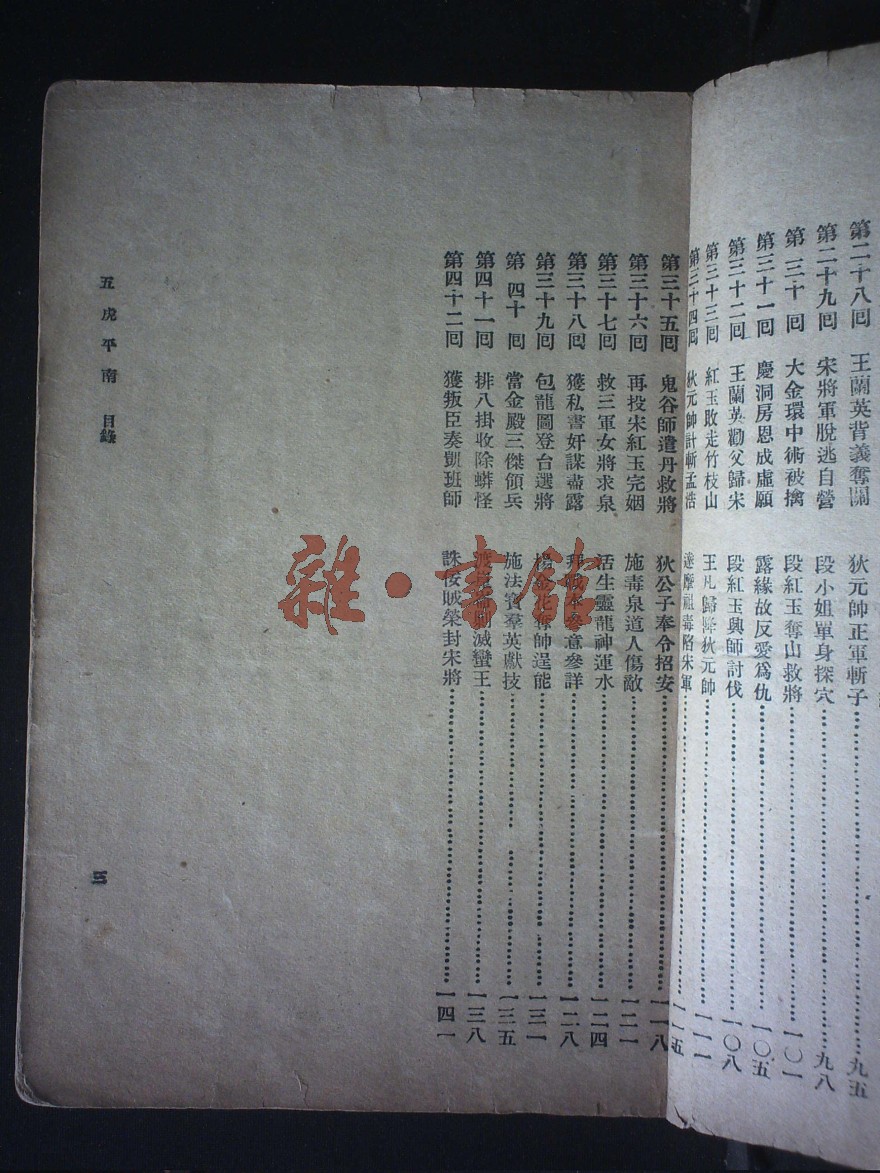 第二十八回 王蘭英背義奪關 狄元帥正軍斬子 九五
第二十九回 宋將軍脫逃自營 段小姐單身探穴 九八
第三十回 大金環中術被擒 段紅玉奪山救將 一〇一
第三十一回 慶洞房恩成虛願 露緣故反愛爲仇 一〇五
第三十二回 王蘭英勸父歸宋 段紅玉興師討伐 一〇八
第三十三回 紅玉敗走竹枝山 王凡歸降狄元帥 一一一
第三十四回 狄元帥計斬孟浩 達摩祖毒陷宋軍 一一五
第三十五回 鬼谷師遣丹救將 狄公子奉令招安 一一八
第三十六回 再投宋紅玉完姻 施毒泉道人傷敵 一二一
第三十七回 救三軍女將求泉 活生靈龍神運水 一二四
第三十八回 獲私書奸謀盡露 拜本參意參詳 一二八
第三十九回 包龍圖登台選將 楊金花奪帥逞能 一三一
第四十回 當金殿三傑領兵 施法寶羣英獻技 一三五
第四十一回 排八掛收除蟒怪 滅蠻王 一三八
第四十二回 獲叛臣奏凱班師 誅佞賊榮封宋將 一四一
五虎平南 目錄
三
雜·書館